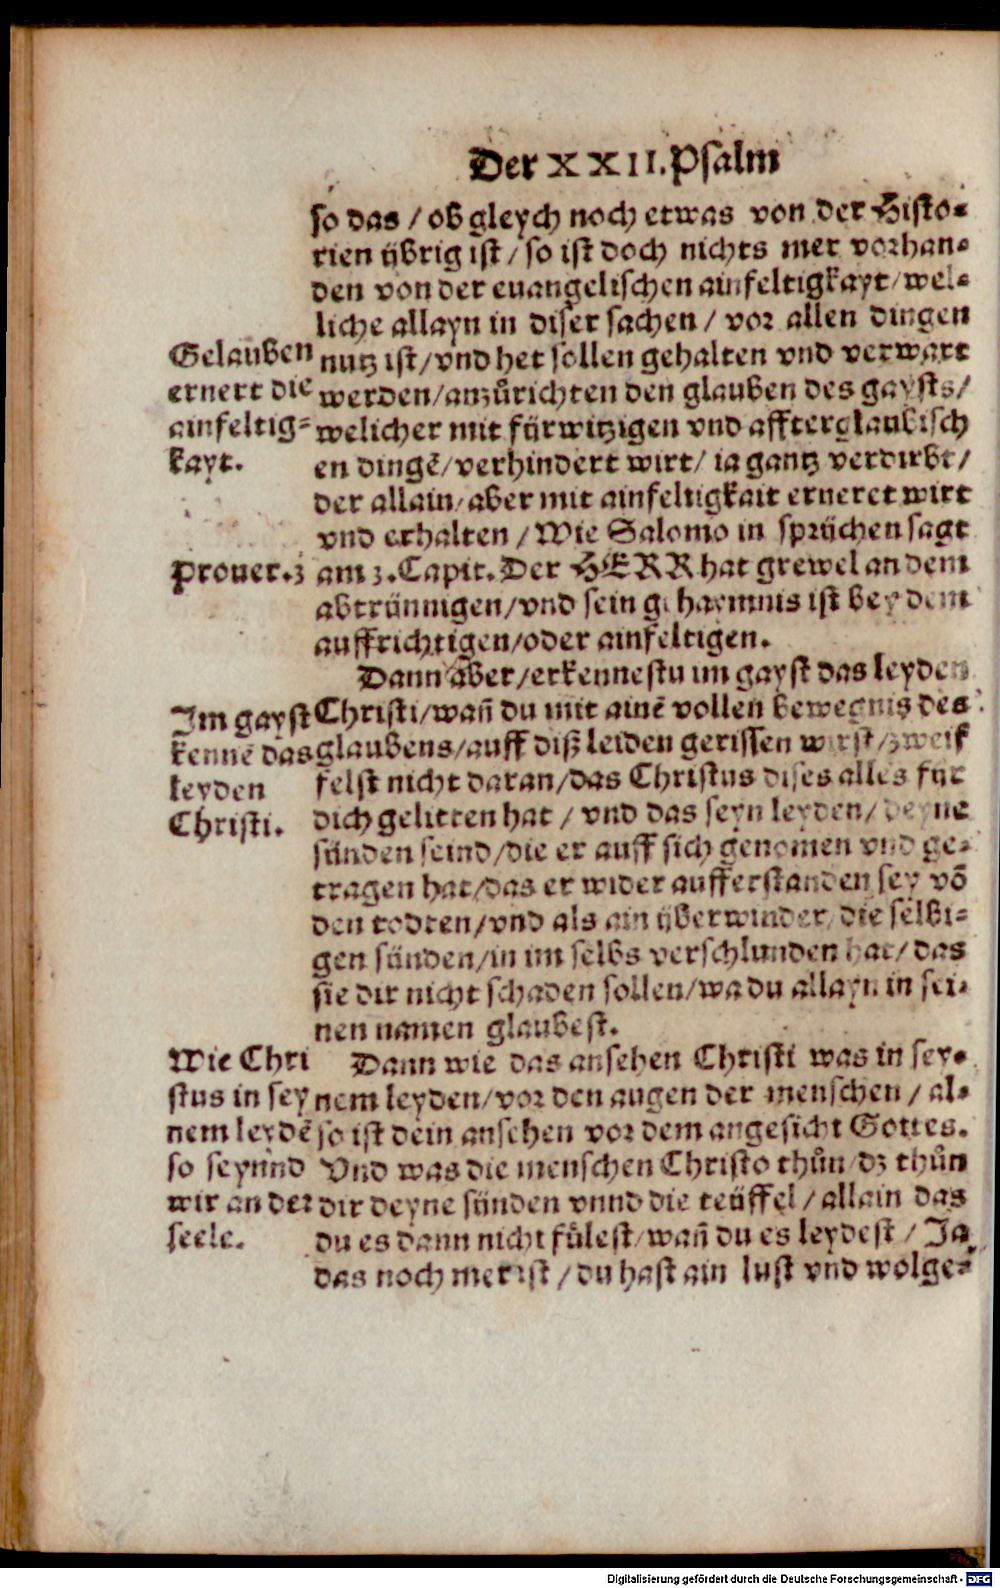 Der XXII. Psalm
so das / ob gleych noch etwas von der Histo-
rien ybrig ist / so ist doch nichts mer vorhan-
den von der euangelischen ainfeltigkayt / wel-
liche allayn in diser sachen / vor allen dingen
nutz ist / vnd het sollen gehalten vnd verwart
werden / anzůrichten den glauben des gaysts /
welicher mit fürwitzigen vnd affterglaubisch
en dingē / verhindert wirt / ia gantz verdirbt /
der allain / aber mit ainfeltigkait erneret wirt
vnd erhalten / Wie Salomo in sprüchen sagt
am 3. Capit. Der HERR hat grewel an dem
abtrünnigen / vnd sein gehaymnis ist bey dem
auffrichtigen / oder ainfeltigen.
Gelauben
ernert die
ainfeltig-
kayt.
Prouer. 3
Dann aber / erkennestu im gayst das leyden
Christi / wañ du mit ainē vollen bewegnis des
glaubens / auff diß leiden gerissen wirst / zweif
felst nicht daran / das Christus dises alles für
dich gelitten hat / vnd das seyn leyden / deyne
sünden seind / die er auff sich genomen vnd ge-
tragen hat / das er wider aufferstanden sey vō
den todten / vnd als ain yberwinder / die selbi-
gen sünden / in im selbs verschlunden hat / das
sie dir nicht schaden sollen / wa du allayn in sei-
nen namen glaubest.
Im gayst
kennē das
leyden
Christi.
Dann wie das ansehen Christi was in sey-
nem leyden / vor den augen der menschen / al-
so ist dein ansehen vor dem angesicht Gottes.
Vnd was die menschen Christo thůn / dz thůn
dir deyne sünden vnnd die teüffel / allain das
du es dann nicht fůlest / wañ du es leydest / Ja
das noch mer ist / du hast ain lust vnd wolge-
Wie Chri
stus in sey
nem leydē
so seynnd
wir an der
seele.
Digitalisierung gefördert durch die Deutsche Forschungsgemeinschaft - DFG